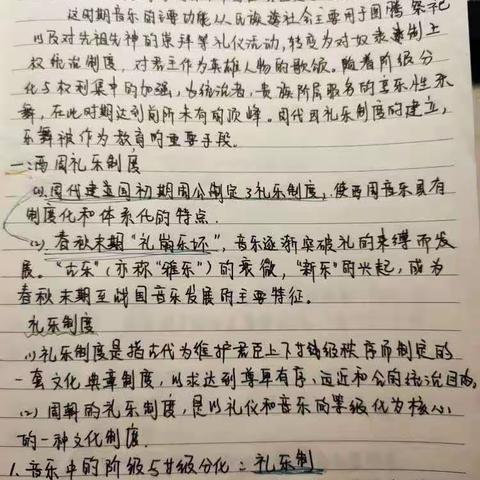 这时期音乐的主要功能从民族社会主要用于图腾祭祀
以及对先祖先神的崇拜等礼仪活动,转变为对奴隶制上
权统治制度、对君主作为英雄人物的歌颂。随着阶级分
化与权利集中的加强,为统治者、贵族阶层服务的享乐性乐
舞,在此时期达到前所未有的顶峰。周代因礼乐制度的建立,
乐舞被作为教育的重要手段。
一:西周礼乐制度
(1).周代建立国初期周公制定了礼乐制度,使西周音乐具有
制度化和体系化的特点.
(2).春秋末期“礼崩乐坏”,音乐逐渐突破礼的束缚而发
展。“古乐”(亦称“雅乐”)的衰微,“新乐”的兴起,成为
春秋末期至战国音乐发展的主要特征。
礼乐制度
(1)礼乐制度是指古代为维护君臣上下等级秩序而制定的
一套文化典章制度,以求达到尊卑有序、远近和合的统治目的。
(2)周朝的礼乐制度,是以礼仪和音乐的等级化为核心
的一种文化制度.
1.音乐中的阶级与等级分化:礼乐制